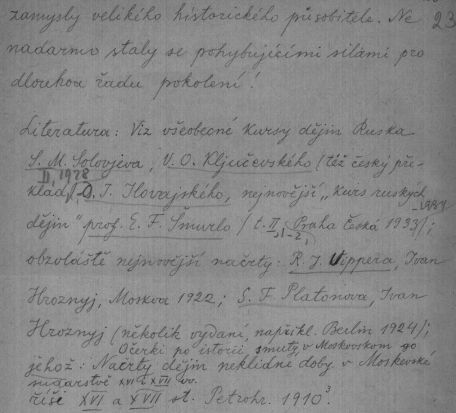 zamysly velikého historického působitele. Ne 23
nadarmo staly se pohybujícími silami pro
dlouhou řadu pokolení!
Literatura: Viz všeobecné kursy dějin Ruska
S. M. Solovjeva, V. O. Ključevského (též český pře-
II, 1928
klad), D. I. Ilovajského, nejnovější „Kurs ruských
dějin" prof. E. F. Šmurlo (t. II, 1-2, Praha Česká 1933-1934);
obzvláště nejnovější načrty: R. J. Vippera, Ivan
Hroznyj, Moskva 1922; S. F. Platonova, Ivan
Hroznyj (několik vydaní, napřikl. Berlin 1924);
Očerki po istorii smuty v Moskovskom go
jehož: Načrty dějin neklidné doby v Moskevské
sudarstvě XVI i XVII vv.
říši XVI a XVII st. Petrohr. 1910³.